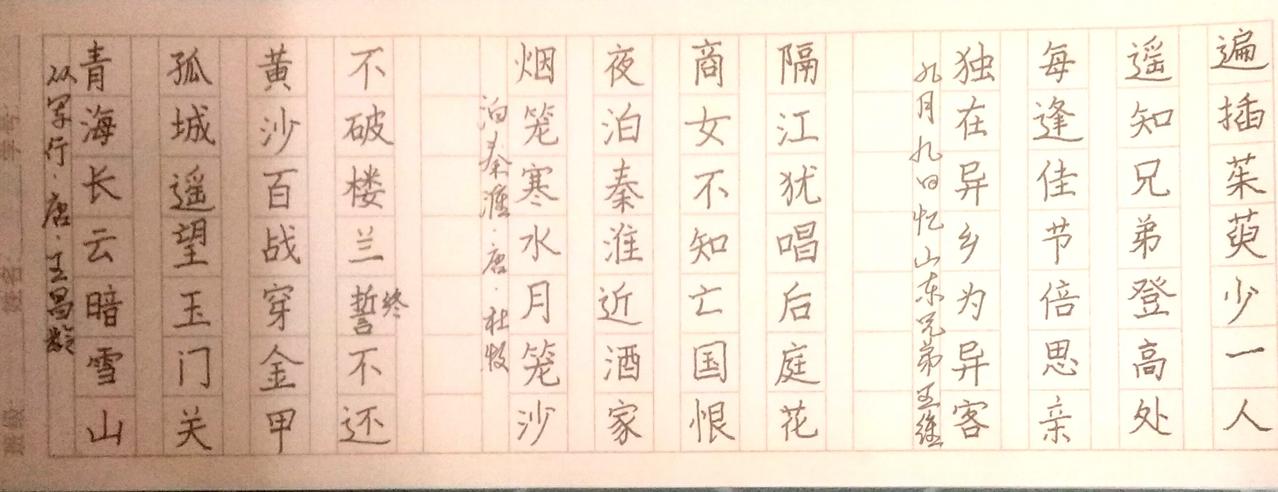 班级:
姓名:
学号:
从军行·唐·王昌龄
青海长云暗雪山
孤城遥望玉门关
黄沙百战穿金甲
不破楼兰誓不还
终
泊秦淮·唐·杜牧
烟笼寒水月笼沙
夜泊秦淮近酒家
商女不知亡国恨
隔江犹唱后庭花
九月九日忆山东兄弟王维
独在异乡为异客
每逢佳节倍思亲
遥知兄弟登高处
遍插茱萸少一人